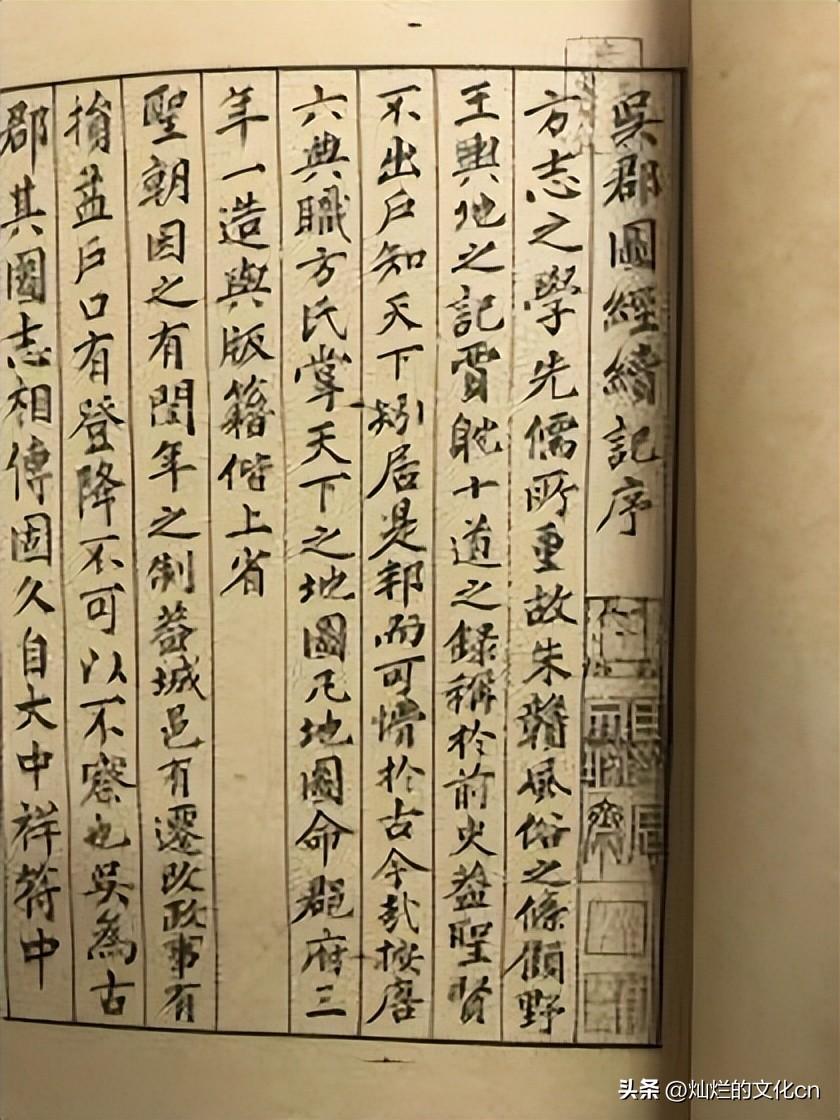 吳郡圖經續記序
方志之學先儒所重故朱贛風俗之條顧野
王輿地之記賈躭十道之錄稱於前史蓋聖賢
不出戶知天下矧居是邦而可懵於古今哉按唐
六典職方氏掌天下之地圖凡地圖命郡府三
年一造與版籍偕上省
聖朝因之有閏年之制蓋城邑有遷改政事有
損益戶口有登降不可以不察也吳為古
郡其圖志相傳固久自大中祥符中
头条 @灿烂的文化cn